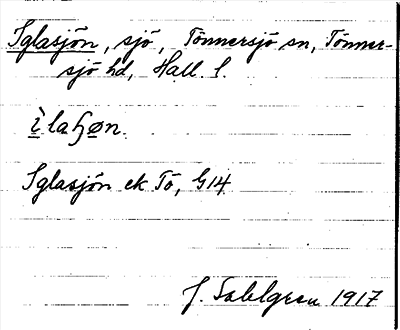 Iglasjön, sjö, Tönnersjö sn, Tönner-
sjö hd, Hall. l.
Iglasjön ek Tö, G14
J. Sahlgren 1917